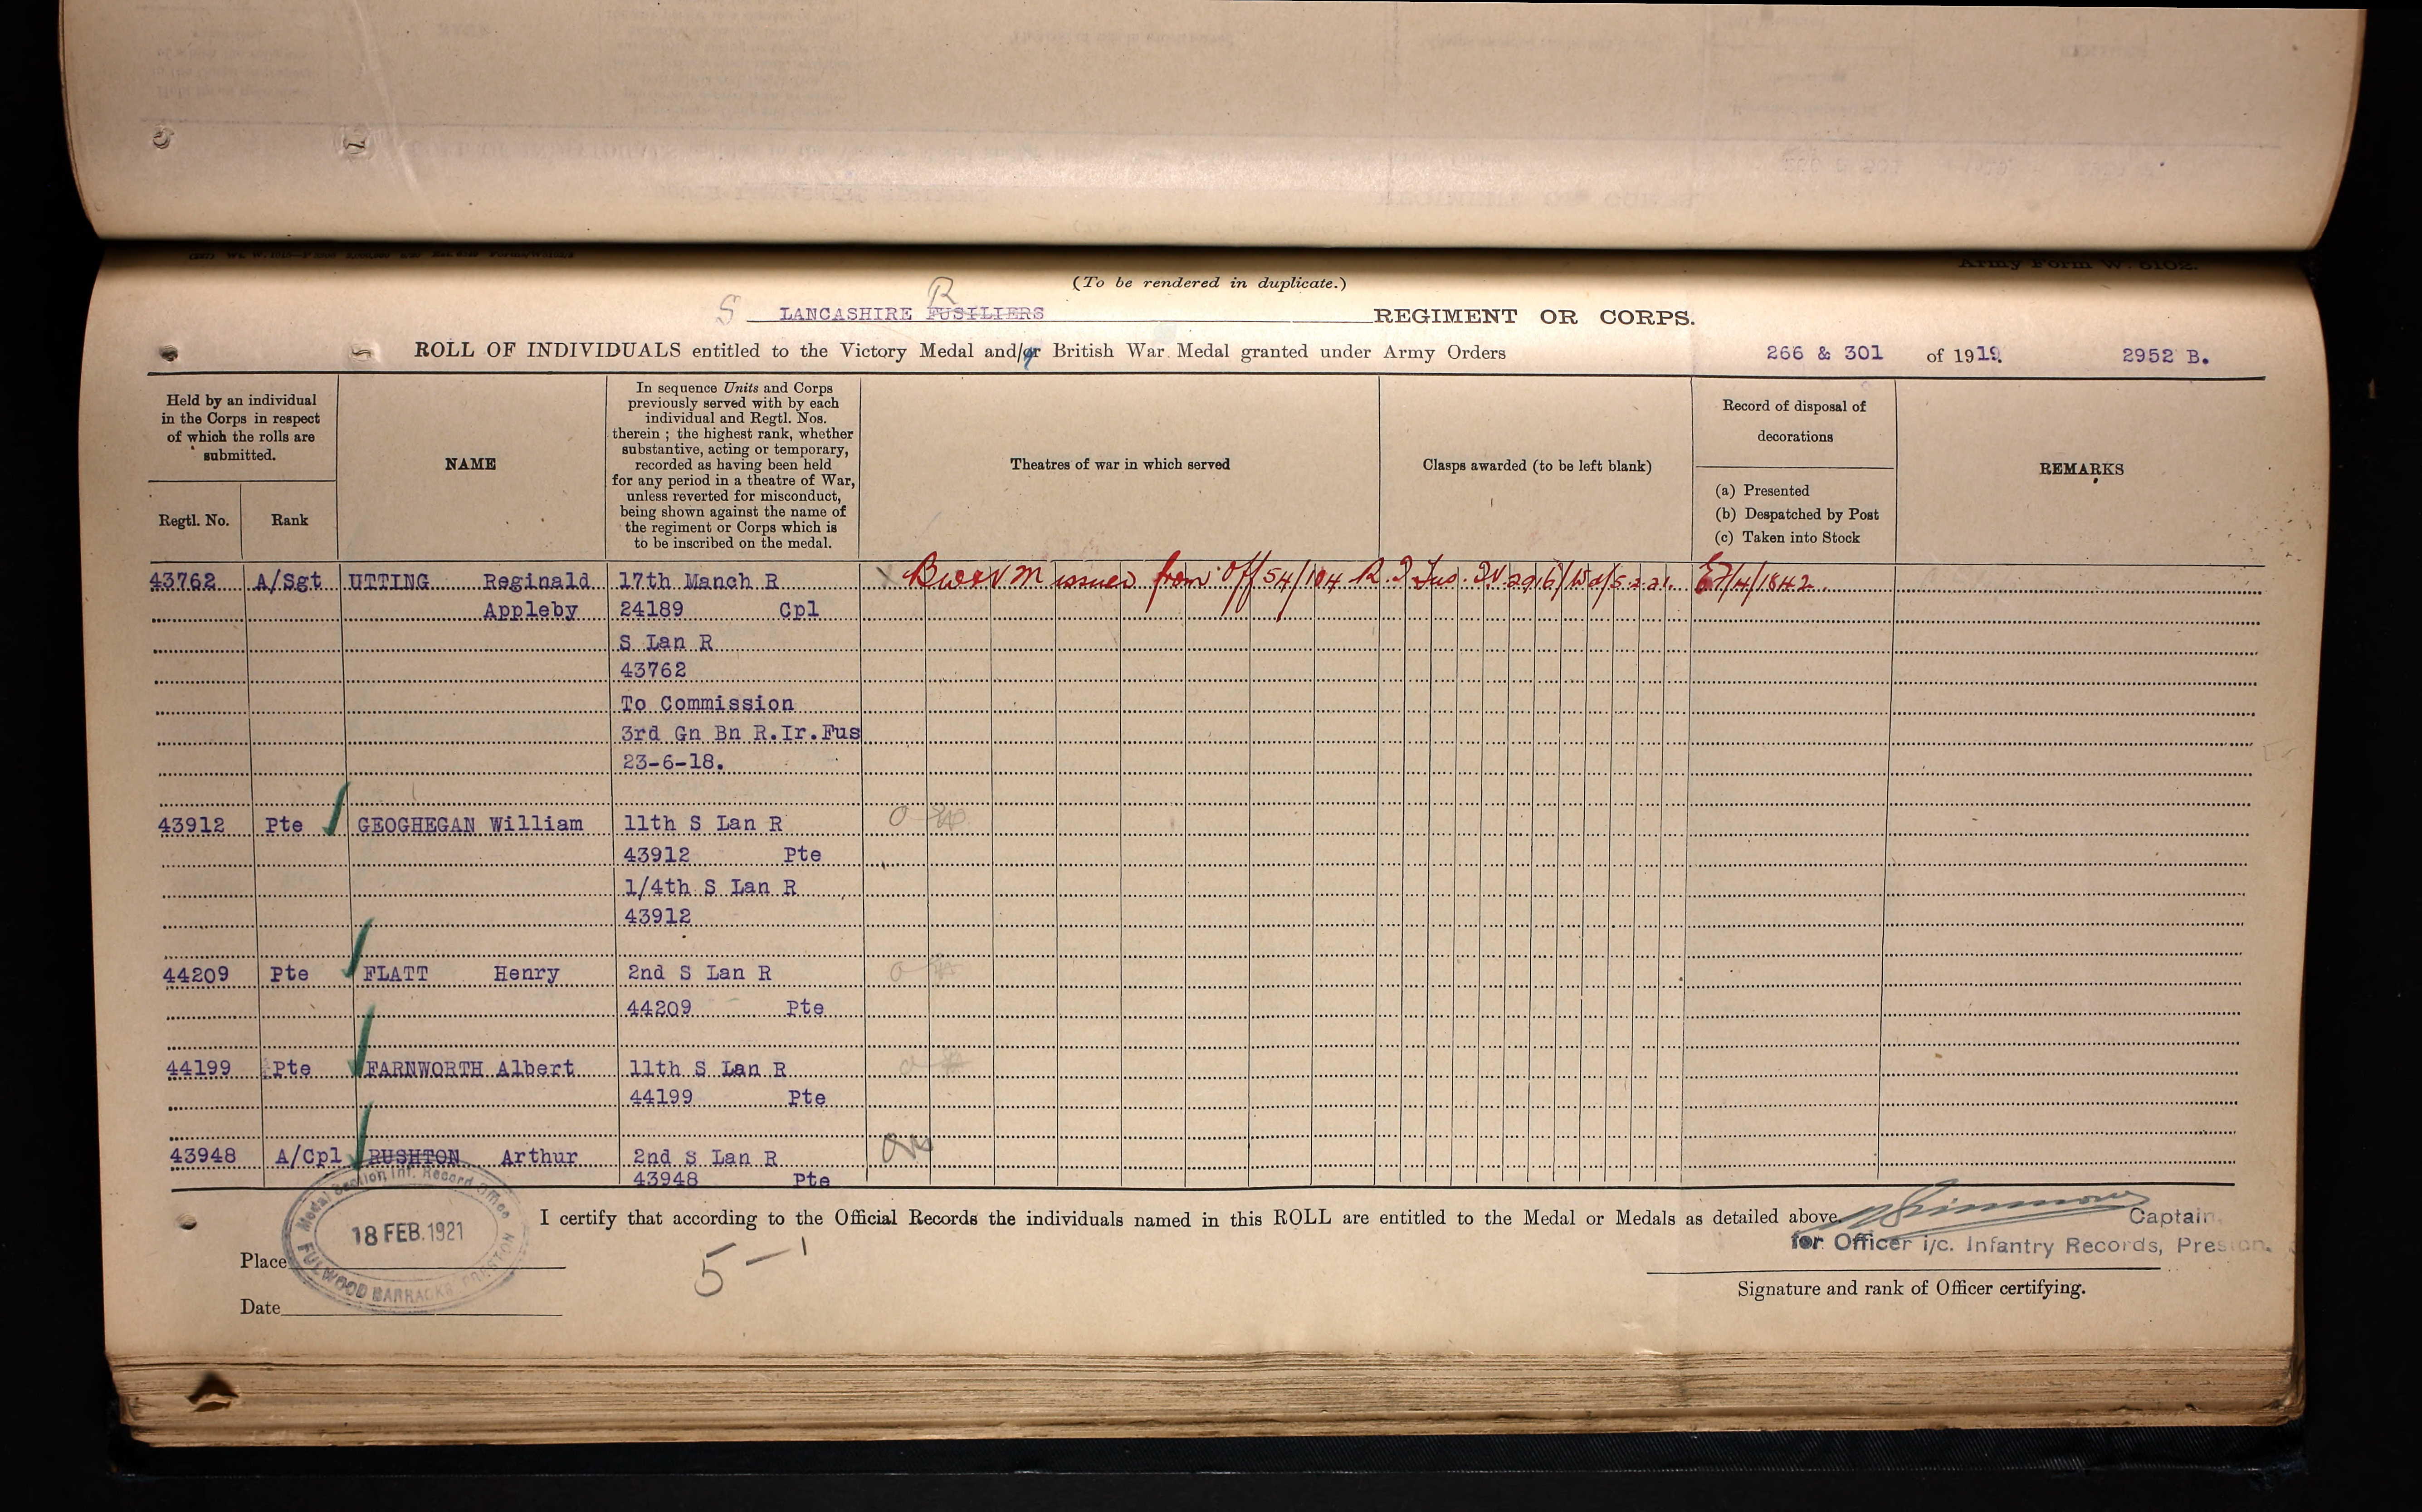 Army Form W. 5102.
(To be rendered in duplicate.)
S LANCASHIRE FUSILIERS R REGIMENT OR CORPS.
ROLL OF INDIVIDUALS entitled to the Victory Medal and/or British War Medal granted under Army Orders 266 & 301 of 1919. 2952 B.
Held by an individual
in the Corps in respect
of which the rolls are
submitted.
Regtl. No.
Rank
NAME
In sequence Units and Corps
previously served with by each
individual and Regtl. Nos.
therein ; the highest rank, whether
substantive, acting or temporary,
recorded as having been held
for any period in a theatre of War,
unless reverted for misconduct,
being shown against the name of
the regiment or Corps which is
to be inscribed on the medal.
Theatres of war in which served
Clasps awarded (to be left blank)
Record of disposal of
decorations
(a) Presented
(b) Despatched by Post
(c) Taken into Stock
REMARKS
43762 A/Sgt UTTING Reginald 17th Manch R X BW&VM issued from Off/54/104 R. I Fus.
Appleby 24189 Cpl
S Lan R
43762
To Commission
3rd Gn Bn R.Ir.Fus
23-6-18.
43912 Pte GEOGHEGAN William 11th S Lan R
43912 Pte
1/4th S Lan R
43912
44209 Pte FLATT Henry 2nd S Lan R
44209 Pte
44199 Pte FARNWORTH Albert 11th S Lan R
44199 Pte
43948 A/Cpl RUSHTON Arthur 2nd S Lan R
43948 Pte
Medal Section Inf. Record Office
18 FEB. 1921
FULWOOD BARRACKS PRESTON
I certify that according to the Official Records the individuals named in this ROLL are entitled to the Medal or Medals as detailed above.
Captain
for Officer i/c. Infantry Records, Preston.
Place
5-1
Signature and rank of Officer certifying.
Date